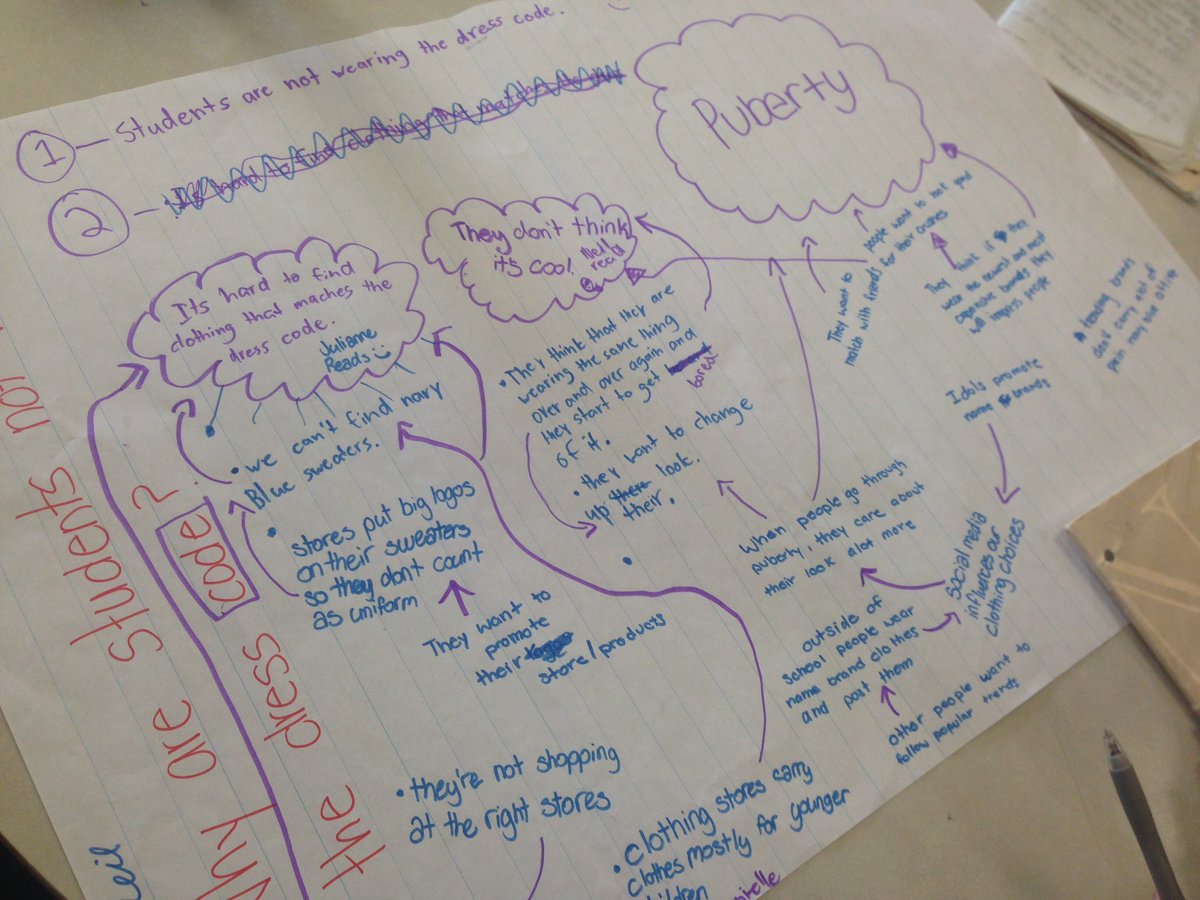 1 — Students are not wearing the dress code.
2 -
Puberty
They don't think
it's cool
It's hard to find
clothing that maches the
dress code.
Julianne
Reads
• we can't find navy
Blue sweaters.
• stores put big logos
on their sweaters
so they dont count
as uniform
They want to
promote
their
store/products
• they're not shopping
at the right stores
• clothing stores carry
clothes mostly for younger
• They think that they are
wearing the same thing
over and over again and
they start to get
bored
of it.
• they want to change
up look.
their.
They want to
match with friends
people want to look good
for their crushes
They think if they
wear the newest and most
expensive brands they
will impress people
Idols promote
name brands
Social media
influences our
clothing choices
when people go through
puberty, they care about
their look alot more
outside of
school people wear
name brand clothes
and post them
other people want to
follow popular trends
Why are students not
the dress code?